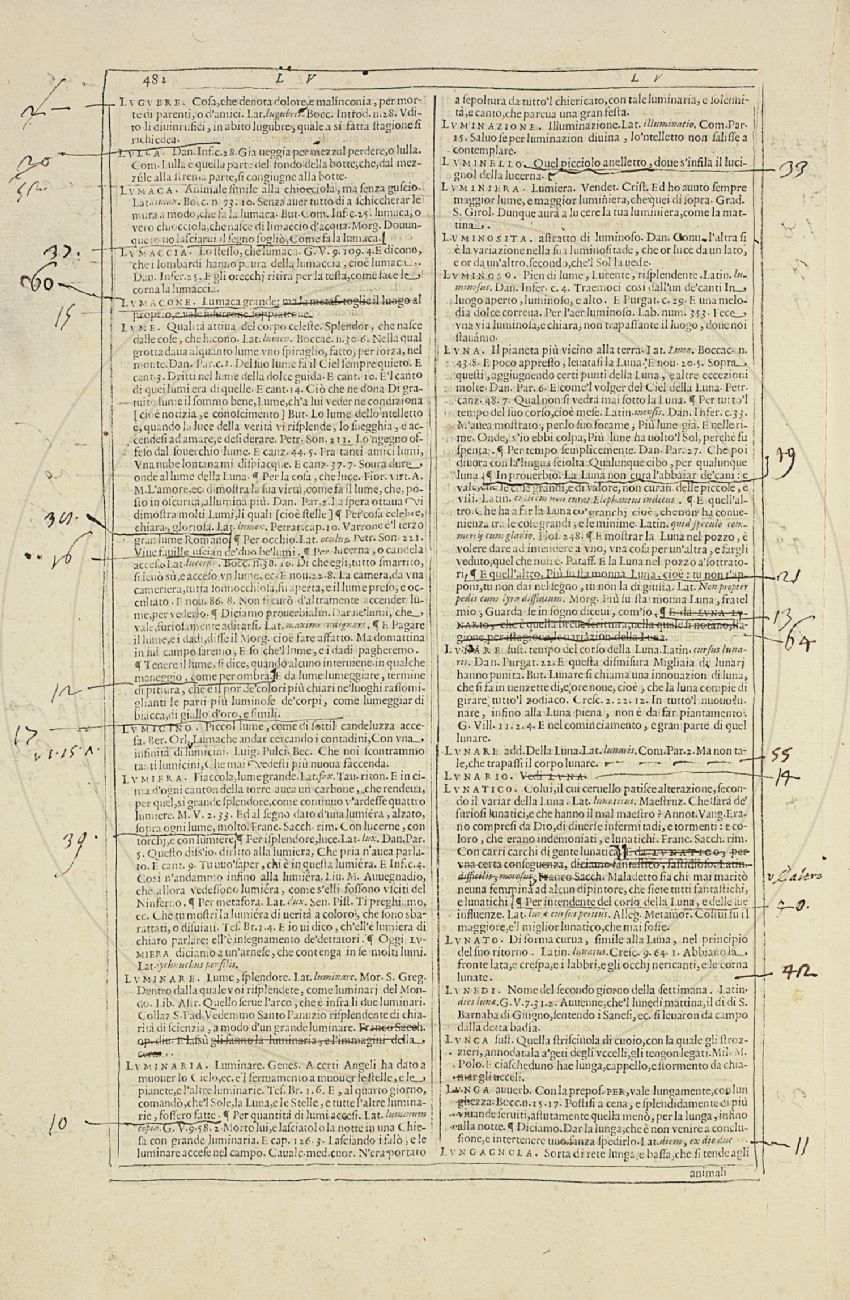 482 L V
LVGVBRE. Cosa, che denota dolore, e malinconia, per mor-
te di parenti, o d'amici. Lat. lugubris. Bocc. Introd. n. 28. Vdi-
to li divini ufici, in abito lugubre, quale a sì fatta stagione si
richiedea.
LVLLA. Dan. Inf. c. 28. Già veggia per mezzul perdere, o lulla.
Com. Lulla è quella parte del fondo della botte, che, dal mez-
zule alla strema parte, si congiugne alla botte.
LVMACA. Animale simile alla chiocciola, ma senza guscio.
Lat. limax. Bocc. n. 73. 10. Senza aver tutto dì a schiccherar le
mura a modo, che fa la lumaca. But. Com. Inf. c. 25. lumaca, o
vero chiocciola, che nasce di limaccio d'acqua. Morg. Dovun-
que no no lasciarvi il segno sogliò, Come fa la lumaca.
LVMACCIA. Lo stesso, che lumaca. G. V. 9. 109. 4. E dicono,
che i lombardi hanno paura della lumaccia, cioè lumaca.
Dan. Inf. 25. E gli orecchj ritira per la testa, come face le
corna la lumaccia.
LVMACONE. Lumaca grande; ma la metaf. toglie il luogo al
proprio, e vale
LVME. Qualità attiva del corpo celeste. Splendor, che nasce
dalle cose, che lucono. Lat. lumen. Boccac. n. 30. 6. Nella qual
grotta dava alquanto lume uno spiraglio, fatto, per forza, nel
monte. Dan. Par. c. 1. Del suo lume fa il Ciel sempre quieto. E
cant. 3. Dritti nel lume della dolce guida. E cant. 10. E'l canto
di quei lumi era di quelle. E cant. 14. Ciò che ne dona Di gra-
tuito lume il sommo bene, Lume, ch'a lui veder ne condiziona
[cioè notizia, e conoscimento] But. Lo lume dello'ntelletto
è, quando la luce della verità vi risplende, lo svegghia, e ac-
cendesi ad amare, e desiderare. Petr. Son. 211. Lo'ngegno of-
feso dal soverchio lume. E canz. 44. 5. Fra tanti amici lumi,
Vna nube lontana mi dispiacque. E canz. 37. 7. Sovra dure
onde al lume della Luna. ¶ Per la cosa, che luce. Fior. virt. A.
M. L'amore, ec. dimostra la sua virtù, come fa il lume, che, po-
sto in oscurità, allumina più. Dan. Par. 2. La spera ottava vi
dimostra molti Lumi, li quali [cioè stelle] ¶ Per cosa celebre,
chiara, gloriosa. Lat. lumen. Petrar. cap. 10. Varrone è 'l terzo
gran lume Romano[ ¶ Per occhio. Lat. oculus. Petr. Son. 221.
Vive faville uscian de'duo be'lumi. ¶ Per lucerna, o candela
accesa. Lat. lucerna. Bocc. n. 38. 10. Di che egli, tutto smarrito,
si levò sù, e acceso vn lume, ec. E nou. 22. 8. La camera, da vna
cameriera, tutta sonnocchiosa, fu aperta, e il lume preso, e oc-
cultato. E nou. 86. 8. Non si curò d'altramente accender lu-
me, per vederlo. ¶ Diciamo proverbialm. Dar ne'lumi, che
vale, furiosamente adirarsi. Lat. maxime indignari. ¶ E Pagare
il lume, e i dadi, disse il Morg. cioè fare affatto. Ma domattina
in sul campo saremo, E so che'l lume, e i dadi pagheremo.
¶ Tenere il lume, si dice, quando alcuno interviene in qualche
maneggio, come per ombra.¶ E da lume lumeggiare, termine
di pittura, che è il por de'colori più chiari ne'luoghi rasfomi-
glianti le parti più luminose de'corpi, come lumeggiar di
biacca, di giallo d'oro, e simili.
LVMICINO. Piccol lume, come di sottil candeluzza acce-
sa. Ber. Orl. Lumache andar cercando i contadini, Con vna
infinità di lumicini. Luig. Pulci, Bec. Che noi scontrammo
tanti lumicini, Che mai vedesti più nuova faccenda.
LVMIERA. Fiaccola, lume grande. Lat. fax. Tav. riton. E in ci-
ma d'ogni canton della torre avea un carbone, che rendeva,
per quel, sì grande splendore, come continuo v'ardesse quattro
lumiere. M. V. 2. 33. Ed al segno dato d'una lumiéra, alzato,
sopra ogni lume, molto. Franc. Sacch. rim. Con lucerne, con
torchj, e con lumiere.[¶ Per isplendore, luce. Lat. lux. Dan. Par.
5. Questo diss'io, diritto alla lumiera, Che pria n'avea parla-
to. E cant. 9. Tu vuo'saper, chi è in questa lumiéra. E Inf. c. 4.
Così n'andammo infino alla lumiéra. Liu. M. Avvegnadio,
che allora vedessono lumiéra, come s'elli fossono vsciti del
Ninferno. ¶ Per metafora. Lat. dux. Sen. Pist. Ti preghiamo,
ec. Che tu mostri la lumiéra di verità a coloro, che sono sba-
rattati, o disviati. Tes. Br. 1. 4. E io vi dico, ch'ell'è lumiera di
chiaro parlare: ell'è insegnamento de'dettatori. ¶ Oggi LV-
MIERA diciamo a un'arnese, che contenga in se molti lumi.
Lat. lychnuchus pensilis.
LVMINARE. Lume, splendore. Lat. luminare. Mor. S. Greg.
Dentro dalla quale voi risplendete, come luminarj del Mon-
do. Lib. Astr. Quello serve l'arco, che è infra li due luminari.
Collaz. S. Pad. Vedemmo Santo Panuzio risplendente di chia-
rità di scienzia, a modo d'un grande luminare. Franco Sacch.
op. div. E lassù gli fanno la luminaria, e l'immagini della
cera.
LVMINARIA. Luminare. Genes. A certi Angeli ha dato a
muover lo Cielo, ec. e'l fermamento a muover le stelle, e le
pianete, e l'altre luminarie. Tes. Br. 1. 6. E, al quarto giorno,
comandò, che'l Sole, la Luna, e le Stelle, e tutte l'altre lumina-
rie, fossero fatte. ¶ Per quantità di lumi accesi. Lat. luminum
copia. G. V. 9. 58. 2. Morto lui, e lasciatolo la notte in una Chie-
sa con grande luminaria. E cap. 126. 3. Lasciando i falò, e le
luminare accese nel campo. Cavalc. med. cuor. N'era portato
L V
a sepoltura da tutto'l chiericato, con tale luminaria, e solenni-
tà, e canto, che pareva una gran festa.
LVMINAZIONE. Illuminazione. Lat. illuminatio. Com. Par.
15. Salvo se per luminazion divina, lo'ntelletto non salisse a
contemplare.
LVMINELLO. Quel picciolo anelletto, dove s'infila il luci-
gnol della lucerna.
LVMINIERA. Lumiera. Vendet. Crist. Ed ho avuto sempre
maggior lume, e maggior luminiera, che quei di sopra. Grad.
S. Girol. Dunque avrà a lucere la tua luminiera, come la mat-
tina.
LVMINOSITA. astratto di luminoso. Dan. Conv. l'altra si
è la variazione nella sua luminositade, che or luce da un lato,
e or da un'altro, secondo, che'l Sol la vede.
LVMINOSO. Pien di lume, Lucente, risplendente. Latin. lu-
minosus. Dan. Infer. c. 4. Traemoci così dall'un de'canti In
luogo aperto, luminoso, e alto. E Purgat. c. 29. E una melo-
dia dolce correva. Per l'aer luminoso. Lab. num. 353. Fece
vna via luminosa, e chiara, non trapassante il luogo, dove noi
stavámo.
LVNA. Il pianeta più vicino alla terra. Lat. Luna. Boccac. n.
43. 8. E poco appresso, levatasi la Luna. E nou. 20. 5. Sopra
questi, aggiugnendo certi punti della Luna, e altre eccezioni
molte. Dan. Par. 6. E come'l volger del Ciel della Luna. Petr.
canz. 48. 7. Qual non si vedrà mai sotto la Luna. ¶ Per tutto'l
tempo del suo corso, cioè mese. Latin. mensis. Dan. Infer. c. 33.
M'avea mostrato, per lo suo forame, Più lune già. E nelle ri-
me. Onde, s'io ebbi colpa, Più lune ha volto'l Sol, perchè fu
spenta. ¶ Per tempo semplicemente. Dan. Par. 27. Che poi
divora con la lingua sciolta Qualunque cibo, per qualunque
luna.[ ¶ In proverbio. La Luna non cura l'abbaiar de'cani: e
vale, che le cose grandi, e di valore, non curan delle piccole, e
vili. Latin. culicem non curat Elephantus indicus. ¶ E quell'al-
tro. Che ha a far la Luna co'granchj cioè, che non ha conve-
nienza tra le cose grandi, e le minime. Latin. quid speculo com-
mercij cum gladio. Flos. 248. ¶ E mostrar la Luna nel pozzo, è
volere dare ad intendere a vno, vna cosa per un'altra, e fargli
veduto, quel che non è. Pataff. E la Luna nel pozzo a'sottrato-
ri.[ ¶ E quell'altro. Più su sta monna Luna, cioè: tu non t'ap-
poni, tu non dai nel segno, tu non la di guita. Lat. Non propter
pedis cum lyra dissitum. Morg. Più su sta monna Luna, fratel
mio, Guarda se in sogno dicevi, com'io. ¶ E da LVNA LV-
NARIO, che è quella breve scrittura, nella quale si notano, sta-
gione per istagione, le variazion della Luna.
LVNARE sust. tempo del corso della Luna. Latin. cursus luna-
ris. Dan. Purgat. 22. E questa dismisura Migliaia di lunarj
hanno punita. But. Lunare si chiama una innovazion di luna,
che si fa in venzette dì, e ore nove, cioè, che la luna compie di
girare, tutto'l zodiaco. Cresc. 2. 22. 12. In tutto'l nuovo lu-
nare, infino alla Luna piena, non è da far piantamento.
G. Vill. 11. 2. 4. E nel cominciamento, e gran parte di quel
lunare.
LVNARE add. Della Luna. Lat. lunaris. Com. Par. 2. Ma non ta-
le, che trapassi il corpo lunare.
LVNARIO. Vedi LVNA.
LVNATICO. Colui, il cui cervello patisce alterazione, secon-
do il variar della Luna. Lat. lunaticus. Maestruz. Che sarà de'
furiosi lunatici, e che hanno il mal maestro? Annot. Vang. Era-
no compresi da Dio, di diverse infermitadi, e tormenti: e co-
loro, che erano indemoniati, e lunatichi. Franc. Sacch. rim.
Con carri carchi di gente lunatica.[¶ E da LVNATICO, per
vna certa conseguenza, diciamo fantastico, fastidioso. Latin.
difficilis, morosus. Franco Sacch. Maladetto sia chi mai maritò
neuna femmina ad alcun dipintore, che siete tutti fantastichi,
e lunatichi.[ ¶ Per intendente del corso della Luna, e delle sue
influenze. Lat. lunæ cursus peritus. Alleg. Metamor. Costui fu il
maggiore, e'l miglior lunatico, che mai fosse.
LVNATO. Di forma curva, simile alla Luna, nel principio
del suo ritorno. Latin. lunatus. Cresc. 9. 64. 1. Abbiano la
fronte lata, e crespa, e i labbri, e gli occhj nericanti, e le corna
lunate.
LVNEDI. Nome del secondo giorno della settimana. Latin.
dies lunæ. G. V. 7. 31. 2. Avvenne, che'l lunedì mattina, il dì di S.
Barnaba di Giugno, sentendo i Sanesi, ec. si levaron da campo
dalla detta badia.
LVNGA sust. Quella strisciuola di cuoio, con la quale gli stroz-
zieri, annodatala a'geti degli vccelli, gli tengon legati. Mil. M.
Polo. E ciascheduno hae lunga, cappello, e stormento da chia-
mar gli uccelli.
LVNGA auverb. Con la prepos. PER, vale lungamente, con lun-
ghezza. Boccac. n. 15. 17. Postisi a cena, e splendidamente di più
vivande serviti, astutamente quella menò, per la lunga, infino
alla notte. ¶ Diciamo. Dar la lunga, che è non venire a conclu-
sione, e intertenere uno senza spedirlo. Lat. diem, ex die duc
LVNGAGNOLA. Sorta di rete lunga, e bassa, che si tende agli
animali
20
37.
60
15
30.
16
12
17
39.
10
33
19
21
13
64
55
14
42
11